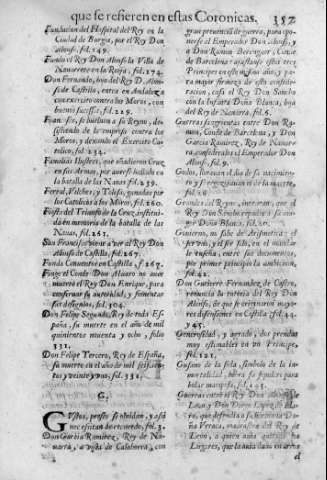 que se refieren en estas Coronicas. 352
Fundacion del Hospital del Rey en la
Ciudad de Burgos, por el Rey Don
Alonso, fol. 249.
Fundò el Rey Don Alonso la Villa de
Navarrete en la Rioja, fol. 274.
Don Fernando, hijo del Rey D. Alonso
de Castilla, entra en Andaluzia
con exercito contra los Moros, con
buenos sucessos, fol. 229.
se burlavan a su Reyno, de-
sistiendo de la empresa contra los
Moros, y dexando el Exercito Cato-
lico, fol. 234.
Familias Ilustres, que añadieron Cruz
en sus Armas, por averse hallado en
la batalla de las Navas fol. 259.
Ferral, Vilches, y Tolosa, ganadas por
los Catolicos à los Moros, fol. 260.
Fiesta del Triunfo de la Cruz, instituì-
da en memoria de la batalla de las
Navas, fol. 261.
San Francisco viene à ver al Rey Don
Alonso de Castilla, fol. 267.
Funda Conventos en Castilla, fol. 267.
Finge el Conde Don Alvaro no aver
muerto el Rey Don Enrique, para
conservar su autoridad, y fomentar
sus designios, fol. 304.
Don Felipe Segundo, Rey de toda Es-
paña, su muerte en el año de mil
quinientos y ocho, folio
331.
Don Felipe Tercero, Rey de España,
su muerte en el año de mil seiscien-
tos y veinte y uno, fol. 331.
G.
Gustos, presto se olvidan, y assi
necessitan de recuerdo, fol. 3.
Don Garcia Ramirez, Rey de Na-
varra, à vista de Calahorra, con
gran prevencion de guerra, para opo-
nerse al Emperador Don Alonso, y
à Don Ramon Berenguer, Conde
de Barcelona: ajustanse estos tres
Principes en este mismo año, y pa-
ra mayor firmeza de esta confede-
racion, casa el Rey Don Sancho
con la Infanta Doña Blanca, hija
del Rey de Navarra, fol. 5.
Guerras sangrientas entre Don Ra-
mon, Conde de Barcelona, y Don
Garcia Ramirez, Rey de Navarra
confederados el Emperador Don
Alonso, fol. 9.
Godos, lloravan el dia de su nacimiento
y se regozijavan el de la muerte,
Grandes del Reyno, intentan, que el
Rey Don Sancho repudie à su mu-
ger Doña Blanca, fol. 20.
Govierno, no sabe de Arismetica: el
ser vnico, y el ser solo, en el mandar
le enseña, entre sus documentos,
por primer principio la ambicion,
fol. 42.
Don Gutierre Fernandez de Castro,
renuncia la tutoria del Rey Don
Alonso, de que se originaron mayo-
res dissensiones en Castilla, fol. 44.
y 45.
Generosidad, y agrado, dos prendas
muy estimables en un Principe,
fol. 121.
Gusano de la seda, simbolo de la in-
mortalidad
Guerras entre el Rey Don Alonso de
Leon, y Don Diego Lopez de Ha-
ro, que defendia à su hermana Do-
ña Vrraca, madrastra del Rey de
Leon, à quien avia quitado los
Lugares, que la avia dado en arras
el